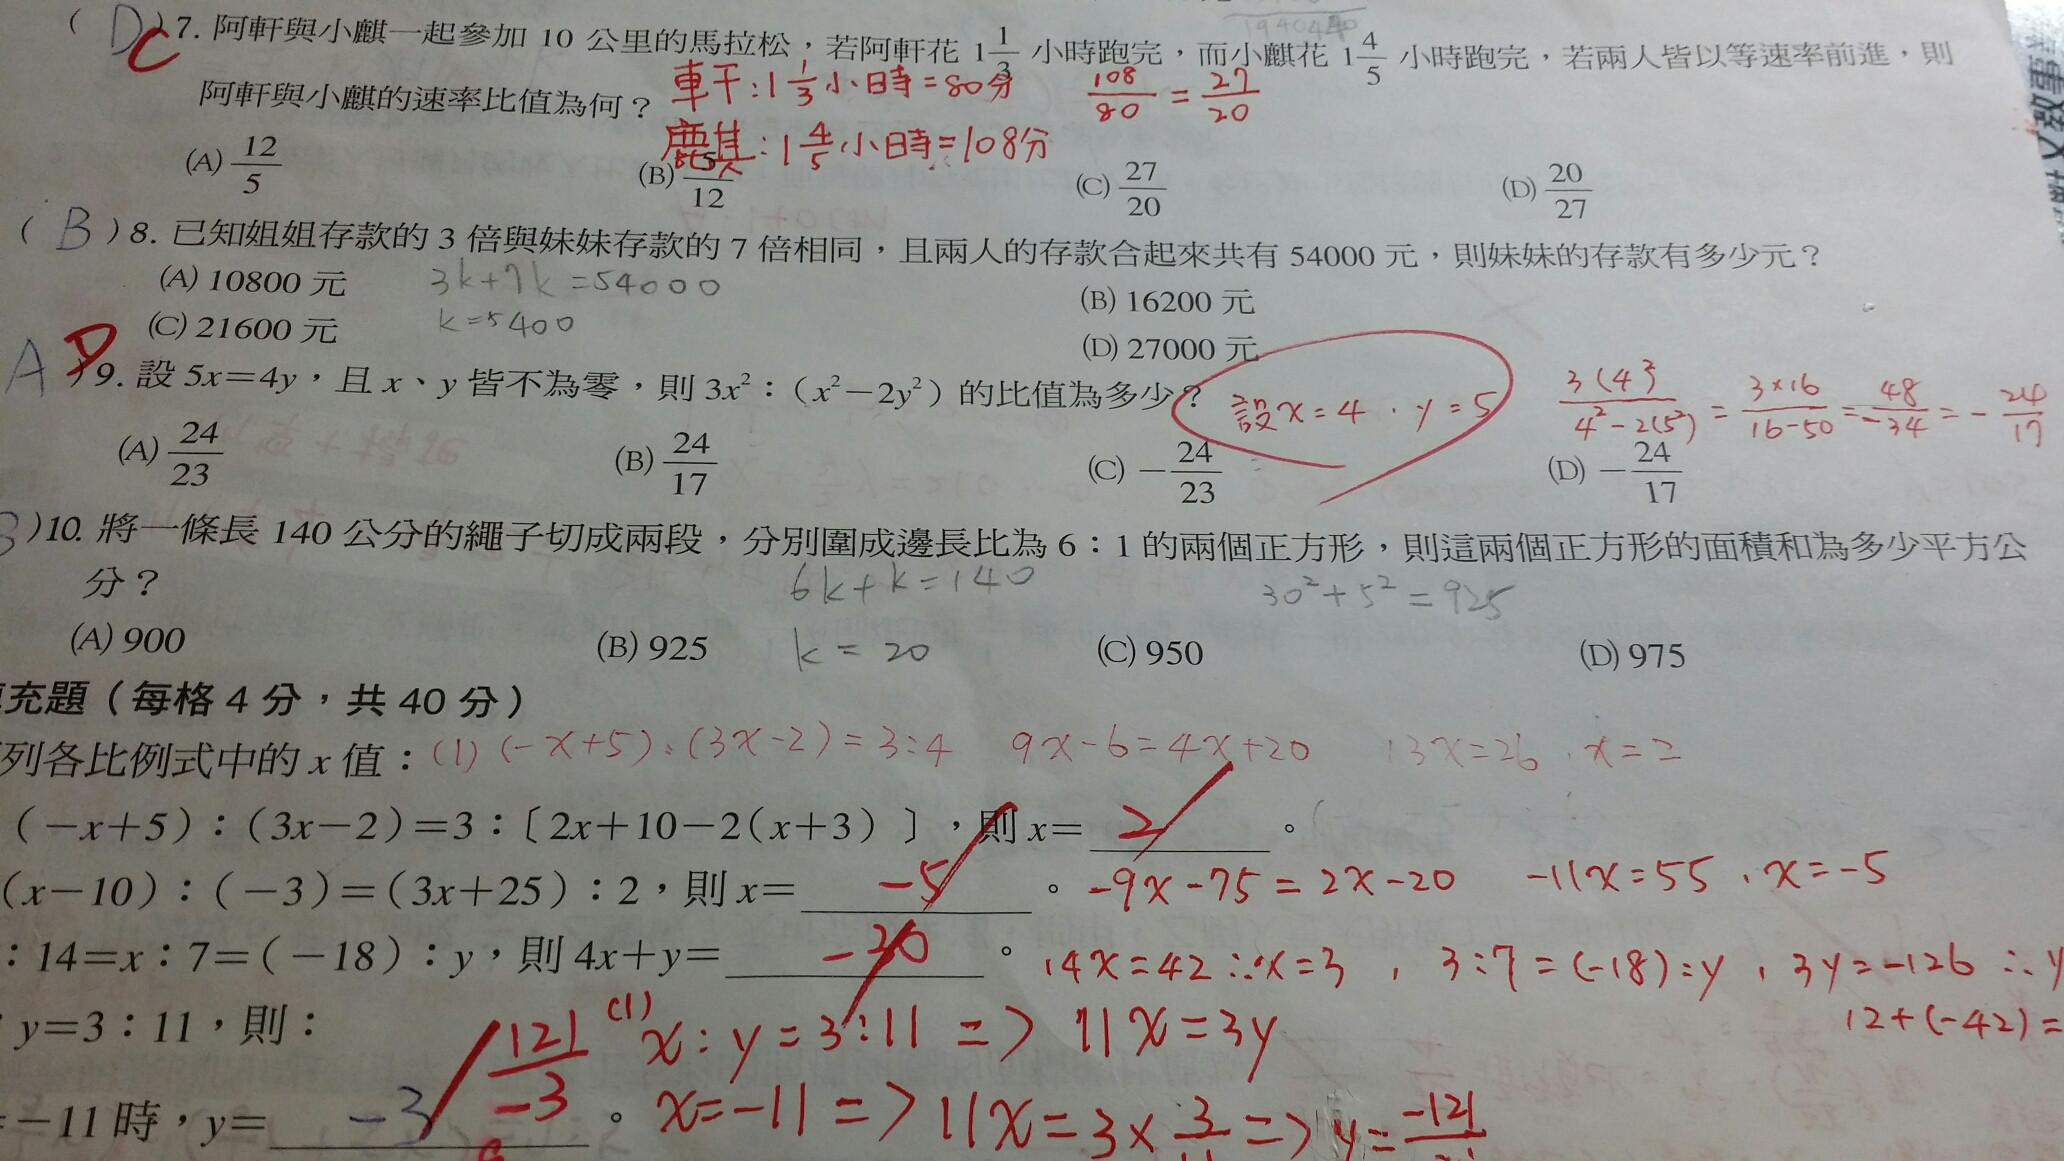 ( D ) C 7. 阿軒與小麒一起參加 10 公里的馬拉松，若阿軒花 1 1/3 小時跑完，而小麒花 1 4/5 小時跑完，若兩人皆以等速率前進，則
阿軒與小麒的速率比值為何？
軒：1 1/3 小時=80分
108/80 = 27/20
麒：1 4/5 小時=108分
(A) 12/5 (B) 5/12 (C) 27/20 (D) 20/27
( B ) 8. 已知姐姐存款的 3 倍與妹妹存款的 7 倍相同，且兩人的存款合起來共有 54000 元，則妹妹的存款有多少元？
(A) 10800 元 (B) 16200 元
3k+7k=54000
(C) 21600 元 (D) 27000 元
k=5400
A D ) 9. 設 5x=4y，且 x、y 皆不為零，則 3x²：（x²－2y²）的比值為多少？
設x=4．y=5
3(4²)/4²-2(5²) = 3×16/16-50 = 48/-34 = -24/17
(A) 24/23 (B) 24/17 (C) －24/23 (D) －24/17
)10. 將一條長 140 公分的繩子切成兩段，分別圍成邊長比為 6：1 的兩個正方形，則這兩個正方形的面積和為多少平方公
分？
6k+k=140
30²+5²=925
(A) 900 (B) 925 (C) 950 (D) 975
k=20
充題（每格 4 分，共 40 分）
列各比例式中的 x 值：
(1) (-x+5):(3x-2)=3:4 9x-6=4x+20 13x=26 . x=2
（－x＋5）：（3x－2）＝3：〔2x＋10－2（x＋3）〕，則 x＝ 2 。
（x－10）：（－3）＝（3x＋25）：2，則 x＝ -5 。
-9x-75=2x-20 -11x=55 , x=-5
：14＝x：7＝（－18）：y，則 4x＋y＝ -30 。
14x=42 ∴x=3 , 3:7=(-18):y , 3y=-126 ∴y
12+(-42)=
y＝3：11，則：
(1) x:y=3:11 => 11x=3y
－11 時，y＝ -3 121/-3 。
x=-11 =>